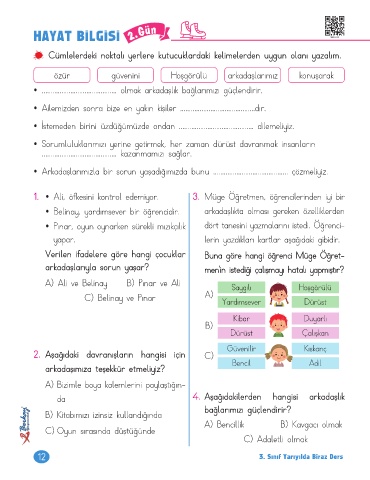 HAYAT BİLGİSİ 2.Gün
Cümlelerdeki noktalı yerlere kutucuklardaki kelimelerden uygun olanı yazalım.
özür güvenini Hoşgörülü arkadaşlarımız konuşarak
• ........................................ olmak arkadaşlık bağlarımızı güçlendirir.
• Ailemizden sonra bize en yakın kişiler ........................................dır.
• İstemeden birini üzdüğümüzde ondan ........................................ dilemeliyiz.
• Sorumluluklarımızı yerine getirmek, her zaman dürüst davranmak insanların
........................................ kazanmamızı sağlar.
• Arkadaşlarımızla bir sorun yaşadığımızda bunu ........................................ çözmeliyiz.
1. • Ali, öfkesini kontrol edemiyor.
• Belinay, yardımsever bir öğrencidir.
• Pınar, oyun oynarken sürekli mızıkçılık
yapar.
Verilen ifadelere göre hangi çocuklar
arkadaşlarıyla sorun yaşar?
A) Ali ve Belinay B) Pınar ve Ali
C) Belinay ve Pınar
2. Aşağıdaki davranışların hangisi için
arkadaşımıza teşekkür etmeliyiz?
A) Bizimle boya kalemlerini paylaştığın-
da
B) Kitabımızı izinsiz kullandığında
C) Oyun sırasında düştüğünde
3. Müge Öğretmen, öğrencilerinden iyi bir
arkadaşlıkta olması gereken özelliklerden
dört tanesini yazmalarını istedi. Öğrenci-
lerin yazdıkları kartlar aşağıdaki gibidir.
Buna göre hangi öğrenci Müge Öğret-
men'in istediği çalışmayı hatalı yapmıştır?
A) Saygılı Hoşgörülü
Yardımsever Dürüst
B) Kibar Duyarlı
Dürüst Çalışkan
C) Güvenilir Kıskanç
Bencil Adil
4. Aşağıdakilerden hangisi arkadaşlık
bağlarımızı güçlendirir?
A) Bencillik B) Kavgacı olmak
C) Adaletli olmak
12
3. Sınıf Tarıyılda Biraz Ders